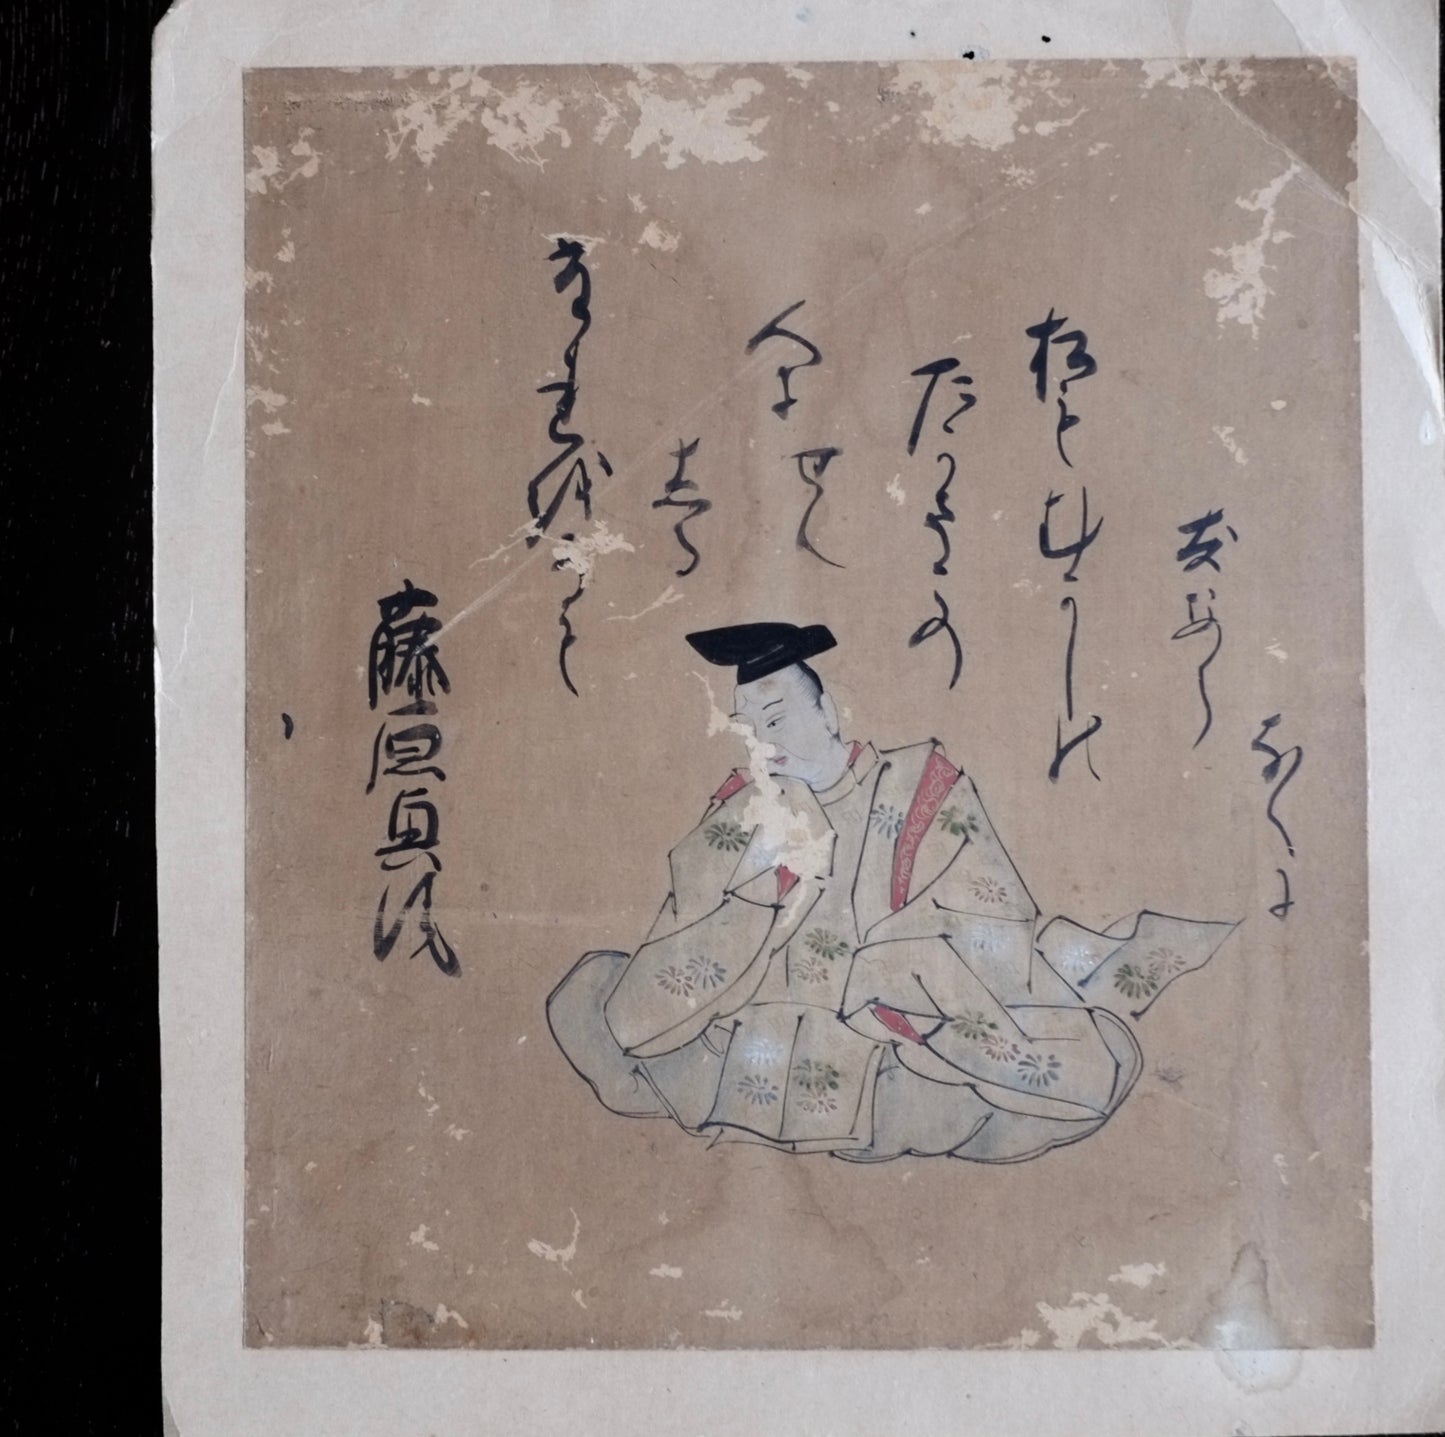 藤原興風
たれをかも
しる
人にせん
たかさこの
松もむかしの
友なら
なくに